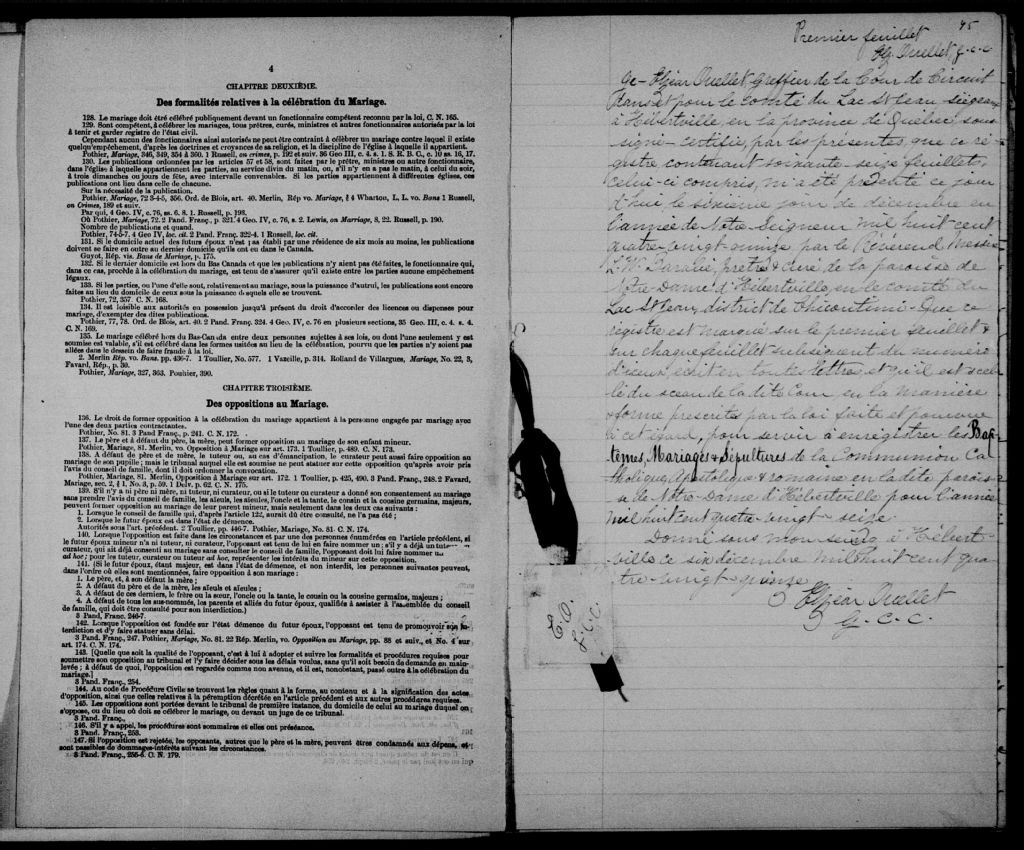 4
CHAPITRE DEUXIÈME.
Des formalités relatives à la célébration du Mariage.
128. Le mariage doit être célébré publiquement devant un fonctionnaire compétent reconnu par la loi, C. N. 165.
129. Sont compétent, à célébrer les mariages, tous prêtres, curés, ministres et autres fonctionnaires autorisés par la loi
à tenir et garder registre de l'état civil.
Cependant aucun des fonctionnaires ainsi autorisés ne peut être contraint à célébrer un mariage contre lequel il existe
quelqu'empêchement, d'après les doctrines et croyances de sa religion, et la discipline de l'église à laquelle il appartient.
Pothier, Mariage, 346, 349, 354 & 360. 1 Russell, on crimes, p. 192 et suiv. 36 Geo III, c. 4. s. 1. S. R. B. C., c. 10 ss. 16, 17.
130. Les publications ordonnées par les articles 57 et 58, sont faites par le prêtre, ministres ou autre fonctionnaire,
dans l'église à laquelle appartiennent les parties, au service divin du matin, ou, s'il n'y en a pas le matin, à celui du soir,
à trois dimanches ou jours de fête, avec intervalle convenables. Si les parties appartiennent à différentes églises, ces
publications ont lieu dans celle de chacune.
Sur la nécessité de la publication.
Pothier, Mariage, 72 3-4-5, 356. Ord. de Blois, art. 40. Merlin, Rép vo. Mariage, § 4 Wharton, L. L. vo. Bans 1 Russell,
on Crimes, 189 et suiv.
Par qui, 4 Geo. IV, c. 76, ss. 6. 8. 1. Russell, p. 193.
Où Pothier, Mariage, 72. 2 Pand. Franç., p. 321. 4 Geo. IV, c. 76, s. 2. Lewis, on Marriage, 8, 22. Russell, p. 190.
Nombre de publications et quand.
Pothier, 74-5-7. 4 Geo IV, loc. cit. 2 Pand. Franç. 322-4. 1 Russell, loc. cit.
131. Si le domicile actuel des futurs époux n'est pas établi par une résidence de six mois au moins, les publications
doivent se faire en outre au dernier domicile qu'ils ont eu dans le Canada.
Guyot, Rép. vis. Bans de Mariage, p. 175.
132. Si le dernier domicile est hors du Bas Canada et que les publications n'y aient pas été faites, le fonctionnaire qui,
dans ce cas, procède à la célébration du mariage, est tenu de s'assurer qu'il existe entre les parties aucune empêchement
légaux.
133. Si les parties, ou l'une d'elle sont, relativement au mariage, sous la puissance d'autrui, les publications sont encore
faites au lieu du domicile de ceux sous la puissance desquels elle se trouvent.
Pothier, 72, 357. C. N. 168.
134. Il est loisible aux autorités en possession jusqu'à présent du droit d'accorder des licences ou dispenses pour
mariage, d'exempter des dites publications.
Pothier, 77, 78. Ord. de Blois, art. 40. 2 Pand. Franç. 324. 4 Geo. IV, c. 76 en plusieurs sections, 35 Geo. III, c. 4. s. 4.
C. N. 169.
135. Le mariage célébré hors du Bas-Canada entre deux personnes sujettes à ses lois, ou dont l'une seulement y est
soumise est valable, s'il est célébré dans les formes usitées au lieu de la célébration, pourvu que les parties n'y soient pas
allées dans le dessein de faire fraude à la loi.
2. Merlin Rép. vo. Bans, pp. 436-7. 1 Toullier, No. 577. 1 Vazeille, p. 314. Rolland de Villargues, Mariage, No. 22, 3,
Favard, Rép., p. 30.
Pothier, Mariage, 327, 363. Pouhier, 390.
CHAPITRE TROISIÈME.
Des oppositions au Mariage.
136. Le droit de former opposition à la célébration du mariage appartient à la personne engagée par mariage avec
l'une des deux parties contractantes.
Pothier, No. 81. 3 Pand Franç, p. 241. C. N. 172.
137. Le père et à défaut du père, la mère, peut former opposition au mariage de son enfant mineur.
Pothier, Mariage, 81. Merlin, vo. Opposition à Mariage sur art. 173. 1 Toullier, p. 489. C. N. 173.
138. A défaut de père et de mère, le tuteur ou, au cas d'émancipation, le curateur peut aussi faire opposition au
mariage de son pupille; mais le tribunal auquel elle est soumise ne peut statuer sur cette opposition qu'après avoir pris
l'avis du conseil de famille, dont il doit ordonner la convocation.
Pothier, Mariage, 81. Merlin, Opposition à Mariage sur art. 172. 1 Toullier, p. 425, 490. 3 Pand. Franç., 248. 2 Favard,
Mariage, sec. 2, § 1. No. 3, p. 59. 1 Delv. p. 62. C. N. 175.
139. S'il n'y a ni père ni mère, ni tuteur, ni curateur, ou si le tuteur ou curateur a donné son consentement au mariage
sans prendre l'avis du conseil de famille, les aïeuls, les aïeules, l'oncle et la tante, le cousin et la cousine germains, majeurs,
peuvent former opposition au mariage de leur parent mineur, mais seulement dans les deux cas suivants :
1. Lorsque le conseil de famille qui, d'après l'article 122, aurait dû être consulté, ne l'a pas été ;
2. Lorsque le futur époux est dans l'état de démence.
Autorités sous l'art. précédent. 2 Toullier, pp. 446-7. Pothier, Mariage, No. 81. C. N. 174.
140. Lorsque l'opposition est faite dans les circonstances et par une des personnes énumérées en l'article précédent, si
le futur époux mineur n'a ni tuteur, ni curateur, l'opposant est tenu de lui en faire nommer un ; s'il y a déjà un tute-
curateur, qui ait déjà consenti au mariage sans consulter le conseil de famille, l'opposant doit lui faire nommer
ad hoc ; pour les tuteur, curateur ou tuteur ad hoc, représenter les intérêts du mineur sur cette opposition.
141. (Si le futur époux, étant majeur, est dans l'état de démence, et non interdit, les personnes suivantes peuvent,
dans l'ordre où elles sont mentionnées, faire opposition à son mariage :
1. Le père, et, à son défaut la mère ;
2. A défaut du père et de la mère, les aïeuls et aïeules ;
3. A défaut de ces derniers, le frère ou la sœur, l'oncle ou la tante, le cousin ou la cousine germains, majeurs ;
4. A défaut de tous les sus-nommés, les parents et alliés du futur époux, qualifiés à assister à l'assemblée du conseil
de famille, qui doit être consulté pour son interdiction.)
3 Pand, Franç. 246-7.
142. Lorsque l'opposition est fondée sur l'état démence du futur époux, l'opposant est tenu de promouvoir son in-
terdiction et d'y faire statuer sans délai.
3 Pand. Franç., 247. Pothier, Mariage, No. 81. 22 Rép. Merlin, vo. Opposition au Mariage, pp. 88 et suiv., et No. 4 sur
art. 174. C. N. 174.
143. [Quelle que soit la qualité de l'opposant, c'est à lui à adopter et suivre les formalités et procédures requises pour
soumettre son opposition au tribunal et l'y faire décider sous les délais voulus, sans qu'il soit besoin de demande en main-
levée ; à défaut de quoi, l'opposition est regardée comme non avenue, et il est, nonobstant, passé outre à la célébration du
mariage.]
3 Pand. Franç., 254.
144. Au code de Procédure Civile se trouvent les règles quant à la forme, au contenu et à la signification des actes
d'opposition, ainsi que celles relatives à la péremption décrétée en l'article précédent et aux autres procédures requises.
145. Les oppositions sont portées devant le tribunal de première instance, du domicile de celui au mariage duquel on
s'oppose, ou du lieu où doit se célébrer le mariage, ou devant un juge de ce tribunal.
3 Pand. Franç.,
146. S'il y a appel, les procédures sont sommaires et elles ont préséance.
3 Pand. Franç., 258.
147. Si l'opposition est rejetée, les opposants, autres que le père et la mère, peuvent être condamnés aux dépens, et
sont passibles de dommages-intérêts suivant les circonstances.
3 Pand. Franç., 255-6. C. N. 179.
45
Premier feuillet
Elz. Ouellet, g. c. c.
Je Elzéar Ouellet, greffier de la Cour de Circuit
dans et pour le Comté du Lac St Jean siégeant
à Hébertville, en la province de Québec, sous-
signé - certifie, par les présentes, que ce re-
gistre contenant soixante-seize feuillets,
celui-ci compris, m'a été présenté ce jour
d'hui le sixième jour de décembre en
l'année de Notre-Seigneur mil huit cent
quatre-vingt-quinze par le Révérend Messire
prêtre & curé de la paroisse de
Notre-Dame d'Hébertville, en le comté du
Lac St Jean, district de Chicoutimi - Que ce
régistre est marqué sur le premier feuillet &
sur chaque feuillet subséquent du numéro
d'iceux, écrit en toutes lettres, et qu'il est scel-
lé du sceau de la dite Cour, en la manière
& forme prescrites par la loi faite et pourvue
à cet égard, pour servir à enregistrer les Bap-
têmes, Mariages & Sépultures de la Communion Ca-
tholique, Apostolique & romaine en la dite parois-
se de Notre-Dame d'Hébertville pour l'année
mil huit cent quatre-vingt-seize.
Donné sous mon seing à Hébert-
ville ce six décembre mil huit cent qua-
tre-vingt-quinze
Elzéar Ouellet
G. C. C.
E. O.
G. C. C.